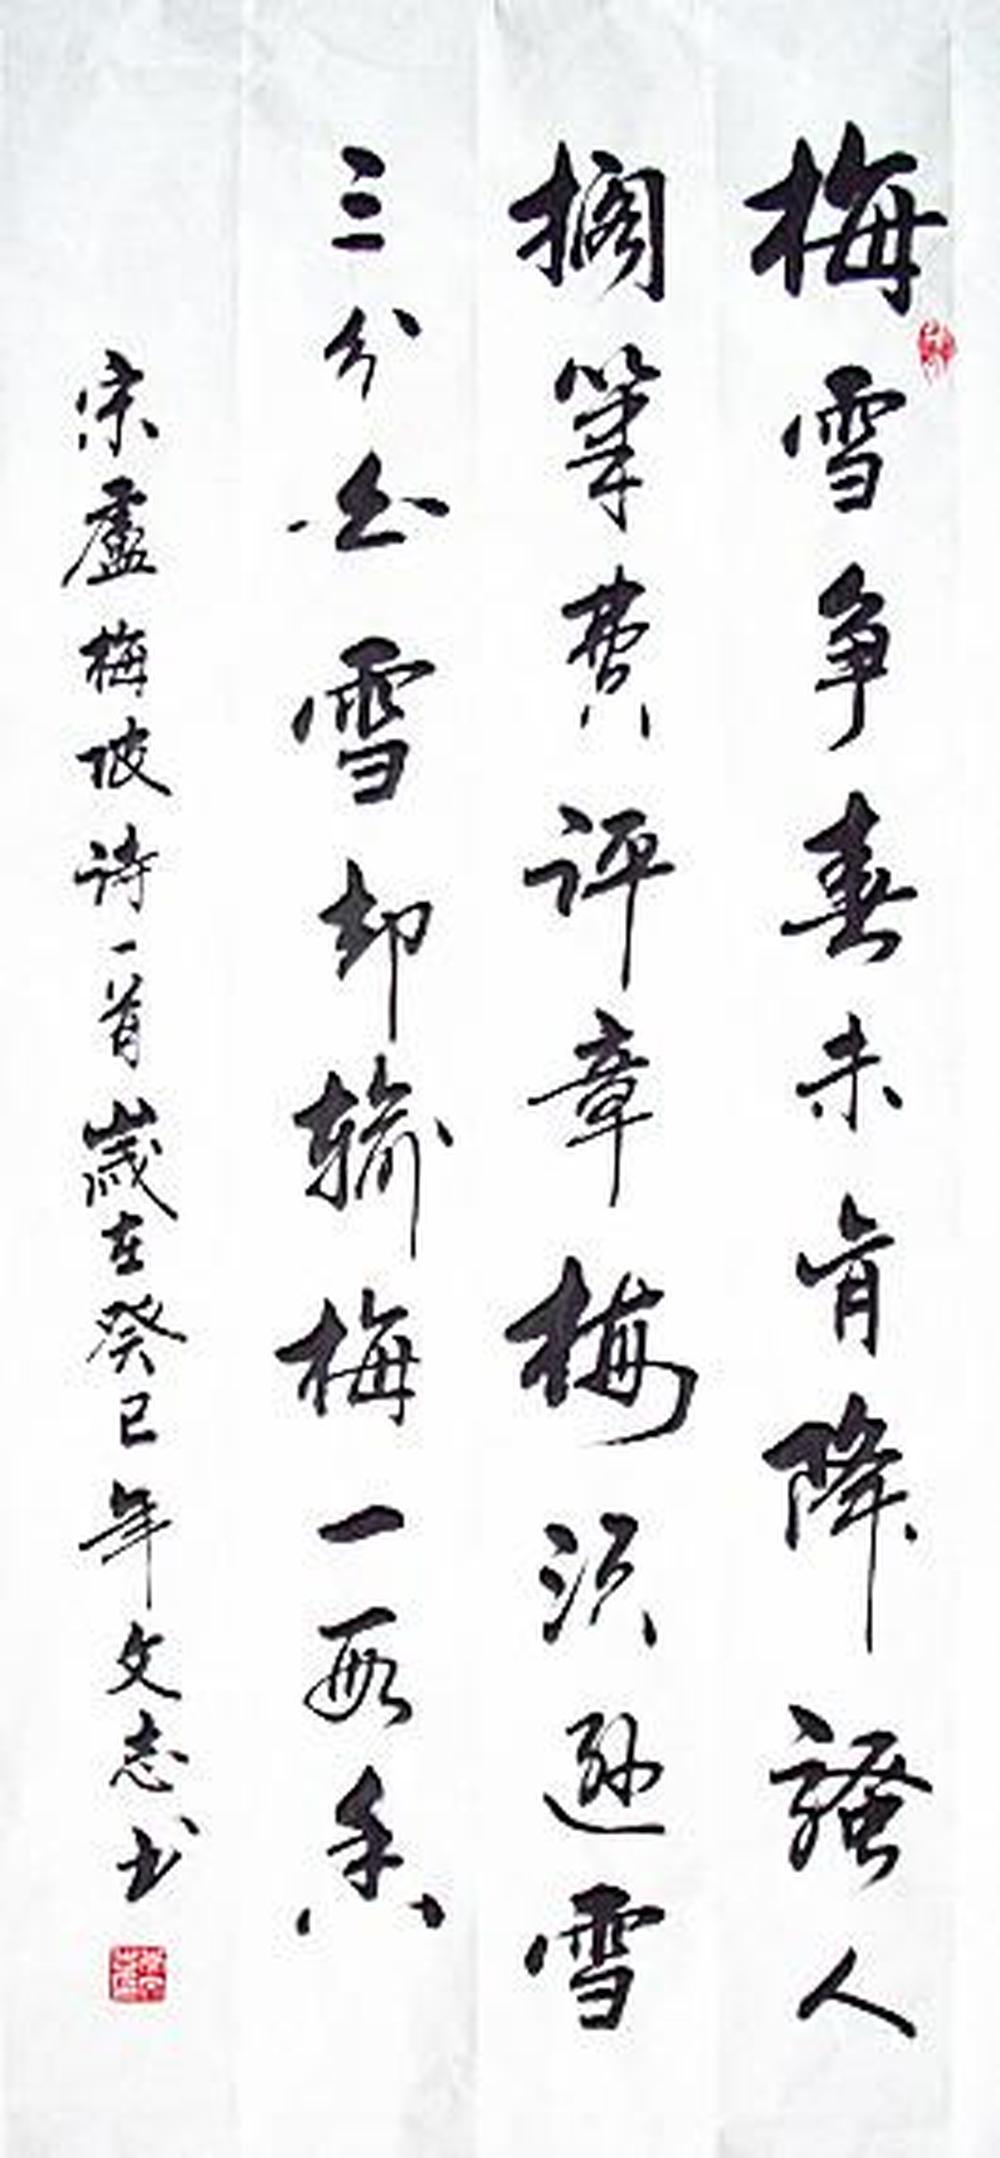 梅雪争春未肯降骚人
搁筆费评章梅须逊雪
三分白雪却输梅一段香
宋盧梅坡诗一首歲在癸巳年文志书